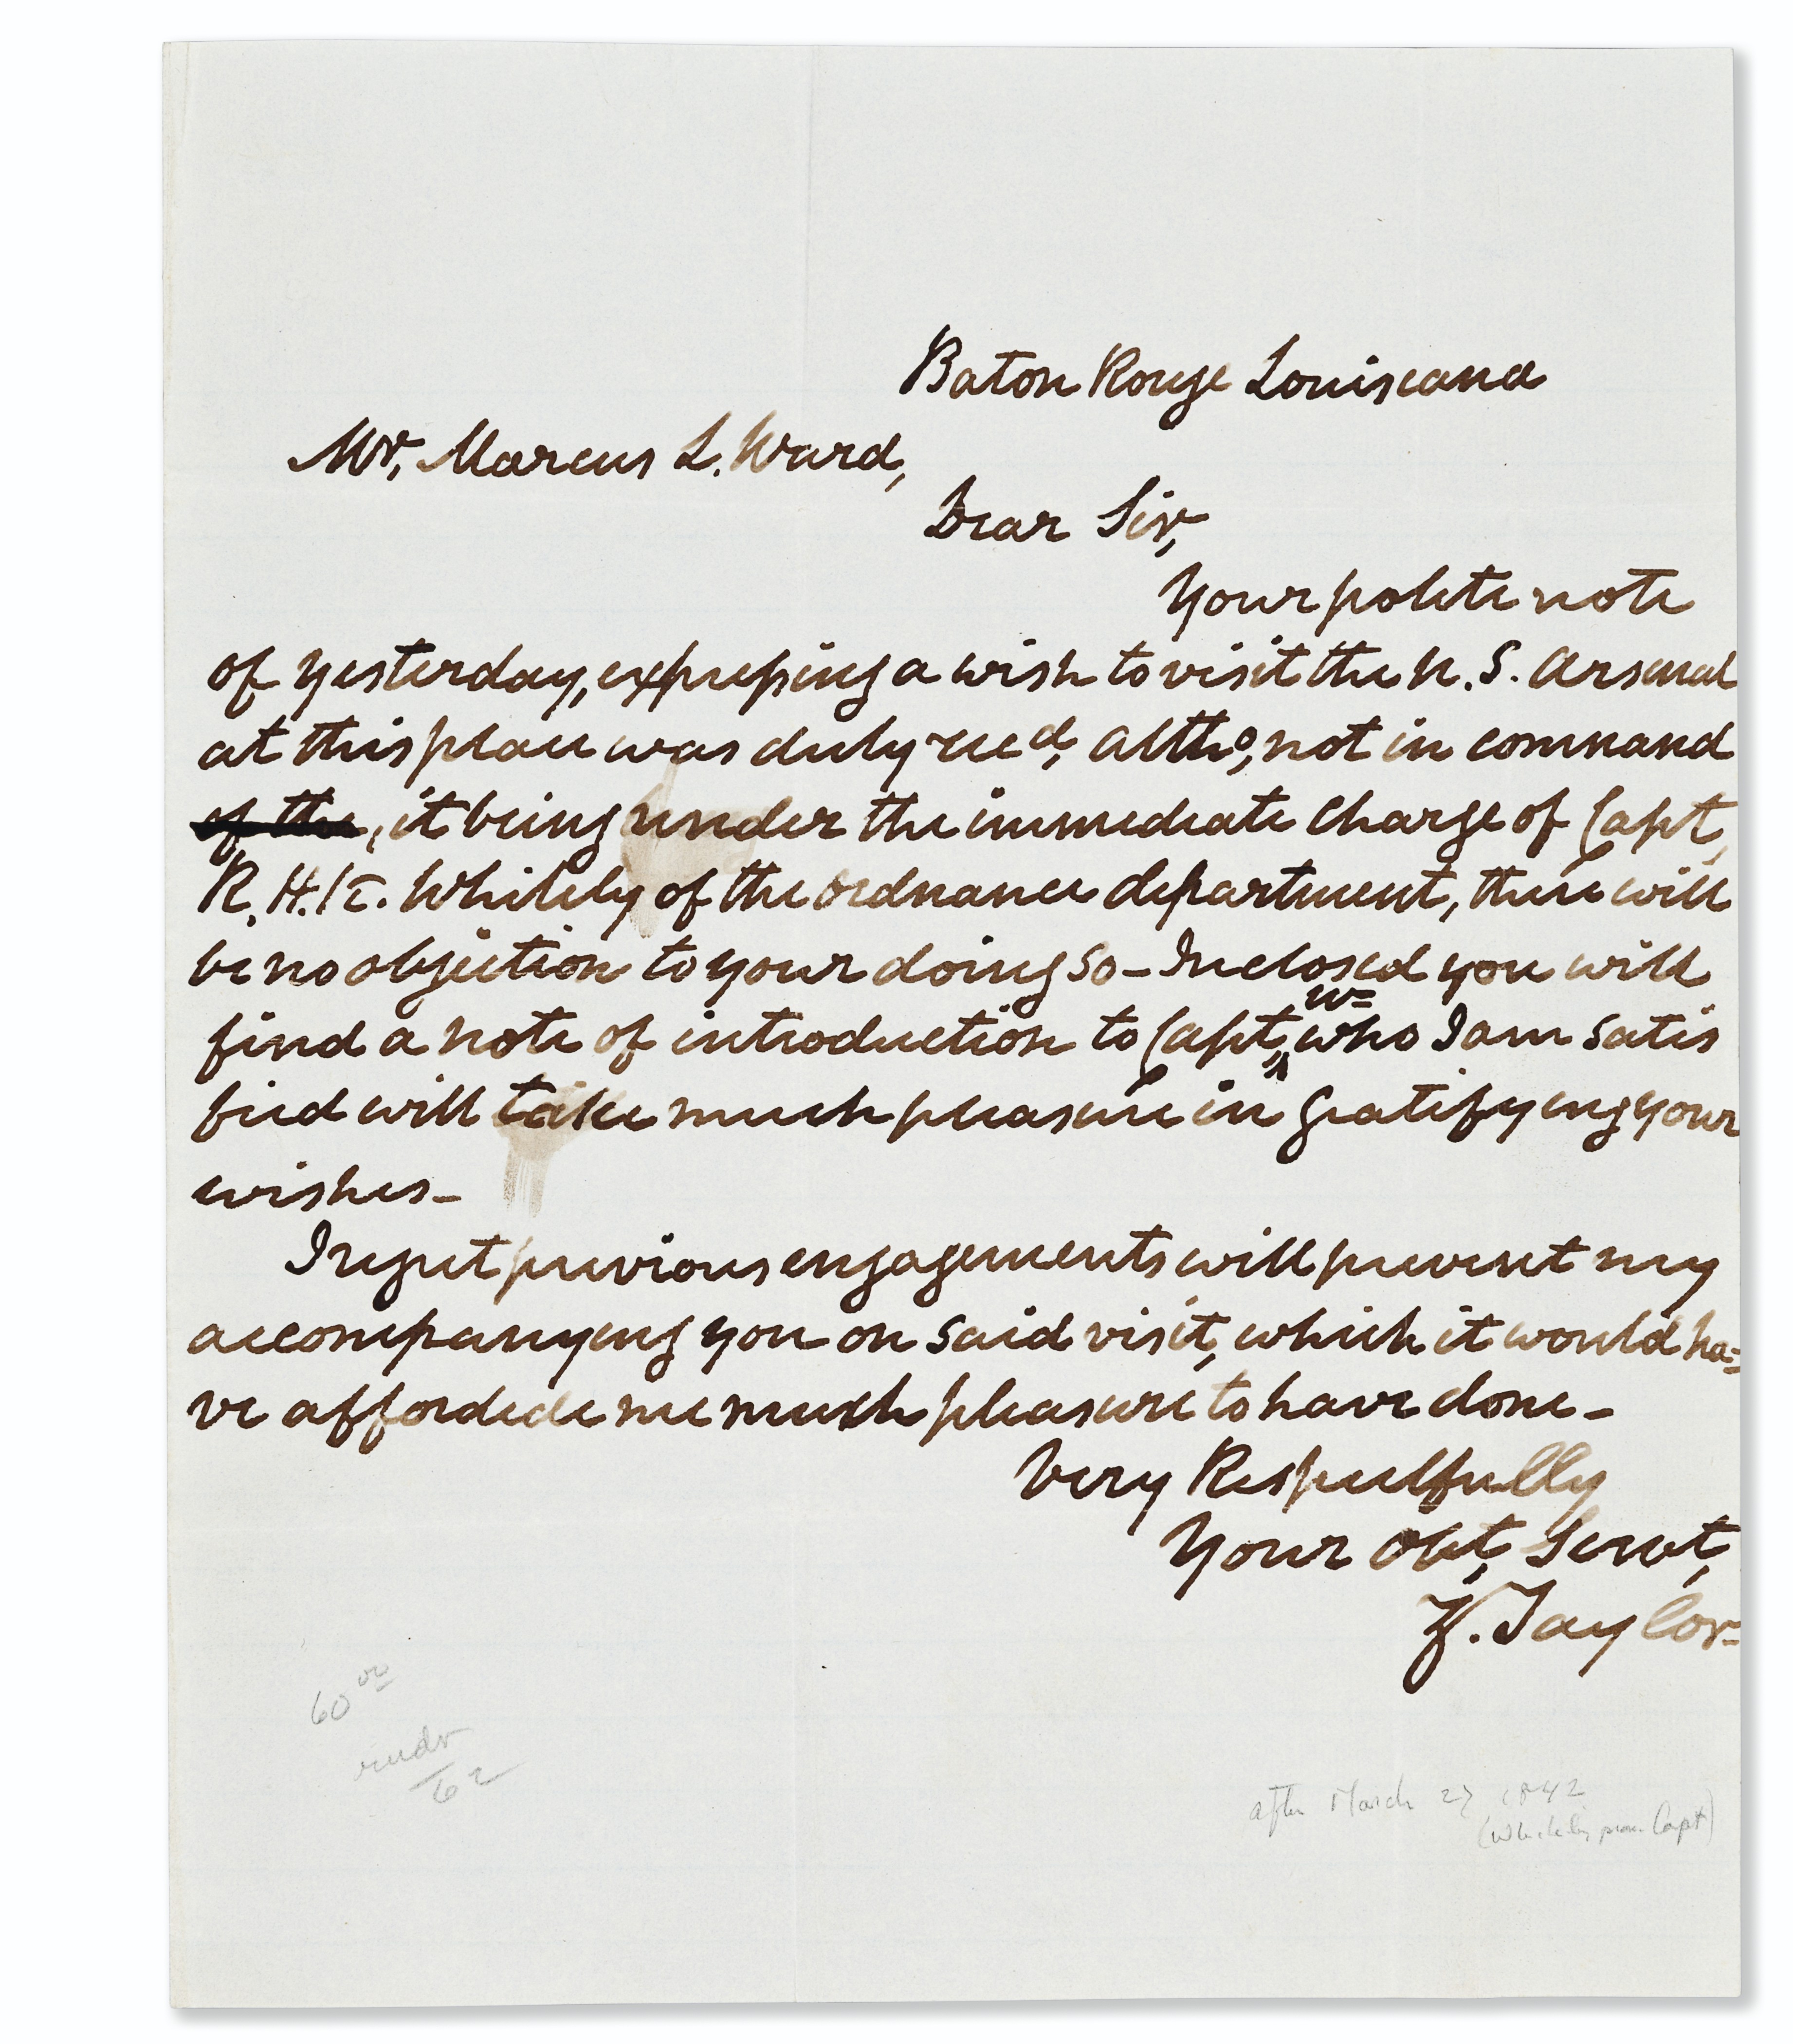 Baton Rouge Louisiana
Mr, Marcus L. Ward,
Dear Sir,
Your polite note
of yesterday, expressing a wish to visit the U.S. Arsenal
at this place was duly recd, altho, not in command
of the, it being under the immediate charge of Capt,
R. H. K. Whitely of the ordnance department, there will
be no objection to your doing so – Inclosed you will
W=
find a note of introduction to Capt, who I am satis
fied will take much pleasure in gratifying your
wishes –
I regret previous engagements will prevent my
accompanying you on said visit, which it would ha=
ve afforded me much pleasure to have done –
Very Respectfully
Your Obt, Servt,
Z. Taylor–
60 00
62
after March 27 1842
(Whitely prom. Capt)